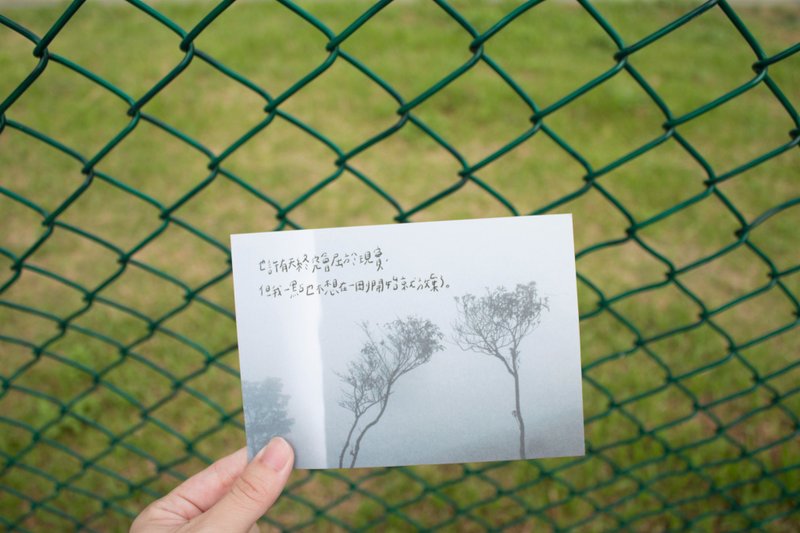 也許有天終究會屈於現實，
但我一點也不想在一開始就放棄了。